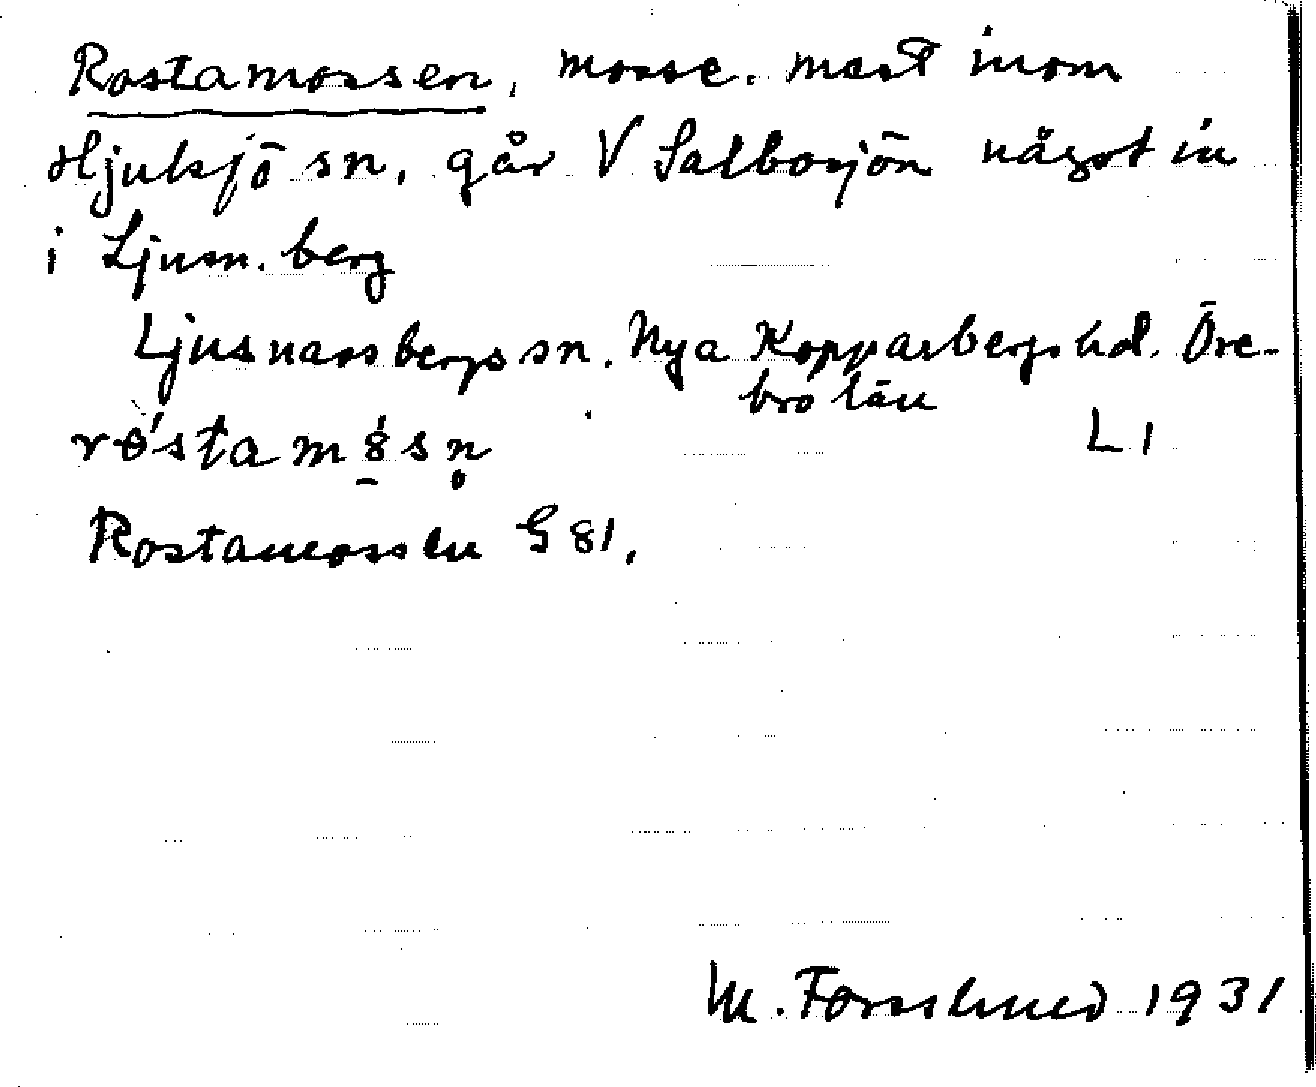 Rostamossen, mosse. mest inom
Hjulsjö sn, går V Salbosjön något in
i Ljusn.berg
Ljusnarsbergs sn. Nya Kopparbergs hd. Öre-
bro län
L 1
Rostamossen G 81.
M. Forsslund 1931